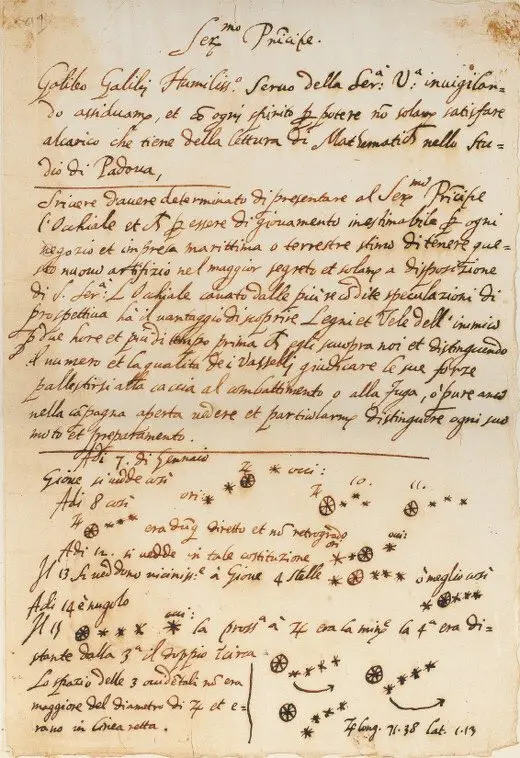 Ser.mo Prĩcipe.
Galileo Galilej Humiliss.o Seruo della Ser.a V.a inuigilan-
do assiduam.e, et cõ ogni spirito p̱ potere nõ solam.e satisfare
alcarico che tiene della lettura di Mathematica nello Stu-
dio di Padoua,
Scriuere dauere determinato di presentare al Ser.mo Prĩcipe
l'Occhiale et p̱ essere di giouamento inestimabile p̱ ogni
negozio et impresa marittima o terrestre stimo di tenere que-
sto nuouo artifizio nel maggior segreto et solam.e a dispositione
di S. Ser.a L'Occhiale cauato dalle più recõdite speculazioni di
prospettiua hà il uantaggio di scoprire Legni et Vele dell'inimico
p̱ due hore et più di tempo prima egli scuopra noi et distinguendo
il numero et la qualità de i Vasselli giudicare le sue forze
pallestirsi alla caccia al combattimento o alla fuga, ò pure anco
nella cãpagna aperta uedere et particolarm.e distinguere ogni suo
moto et preparamento.
Adi 7. di Gennaio
Gioue si uedde così ♃ occi:
Adi 8 così ori: ♃ 10. 11.
♃ era dũq. diretto et nõ retrogrado
Adi 12. si uedde in tale costituzione ori occi:
Il 13 si ueddono uiciniss.e à Gioue 4 stelle ò meglio così
Adi 14 è nugolo
Il 15 occi: la pross.a à ♃ era la min.e la 4.a era di-
stante dalla 3.a il doppio Circa
Lo spazio delle 3 occidẽtali nõ era
maggiore del diametro di ♃ et e-
rano in linea retta.
♃ long. 71.38 lat. 1.13